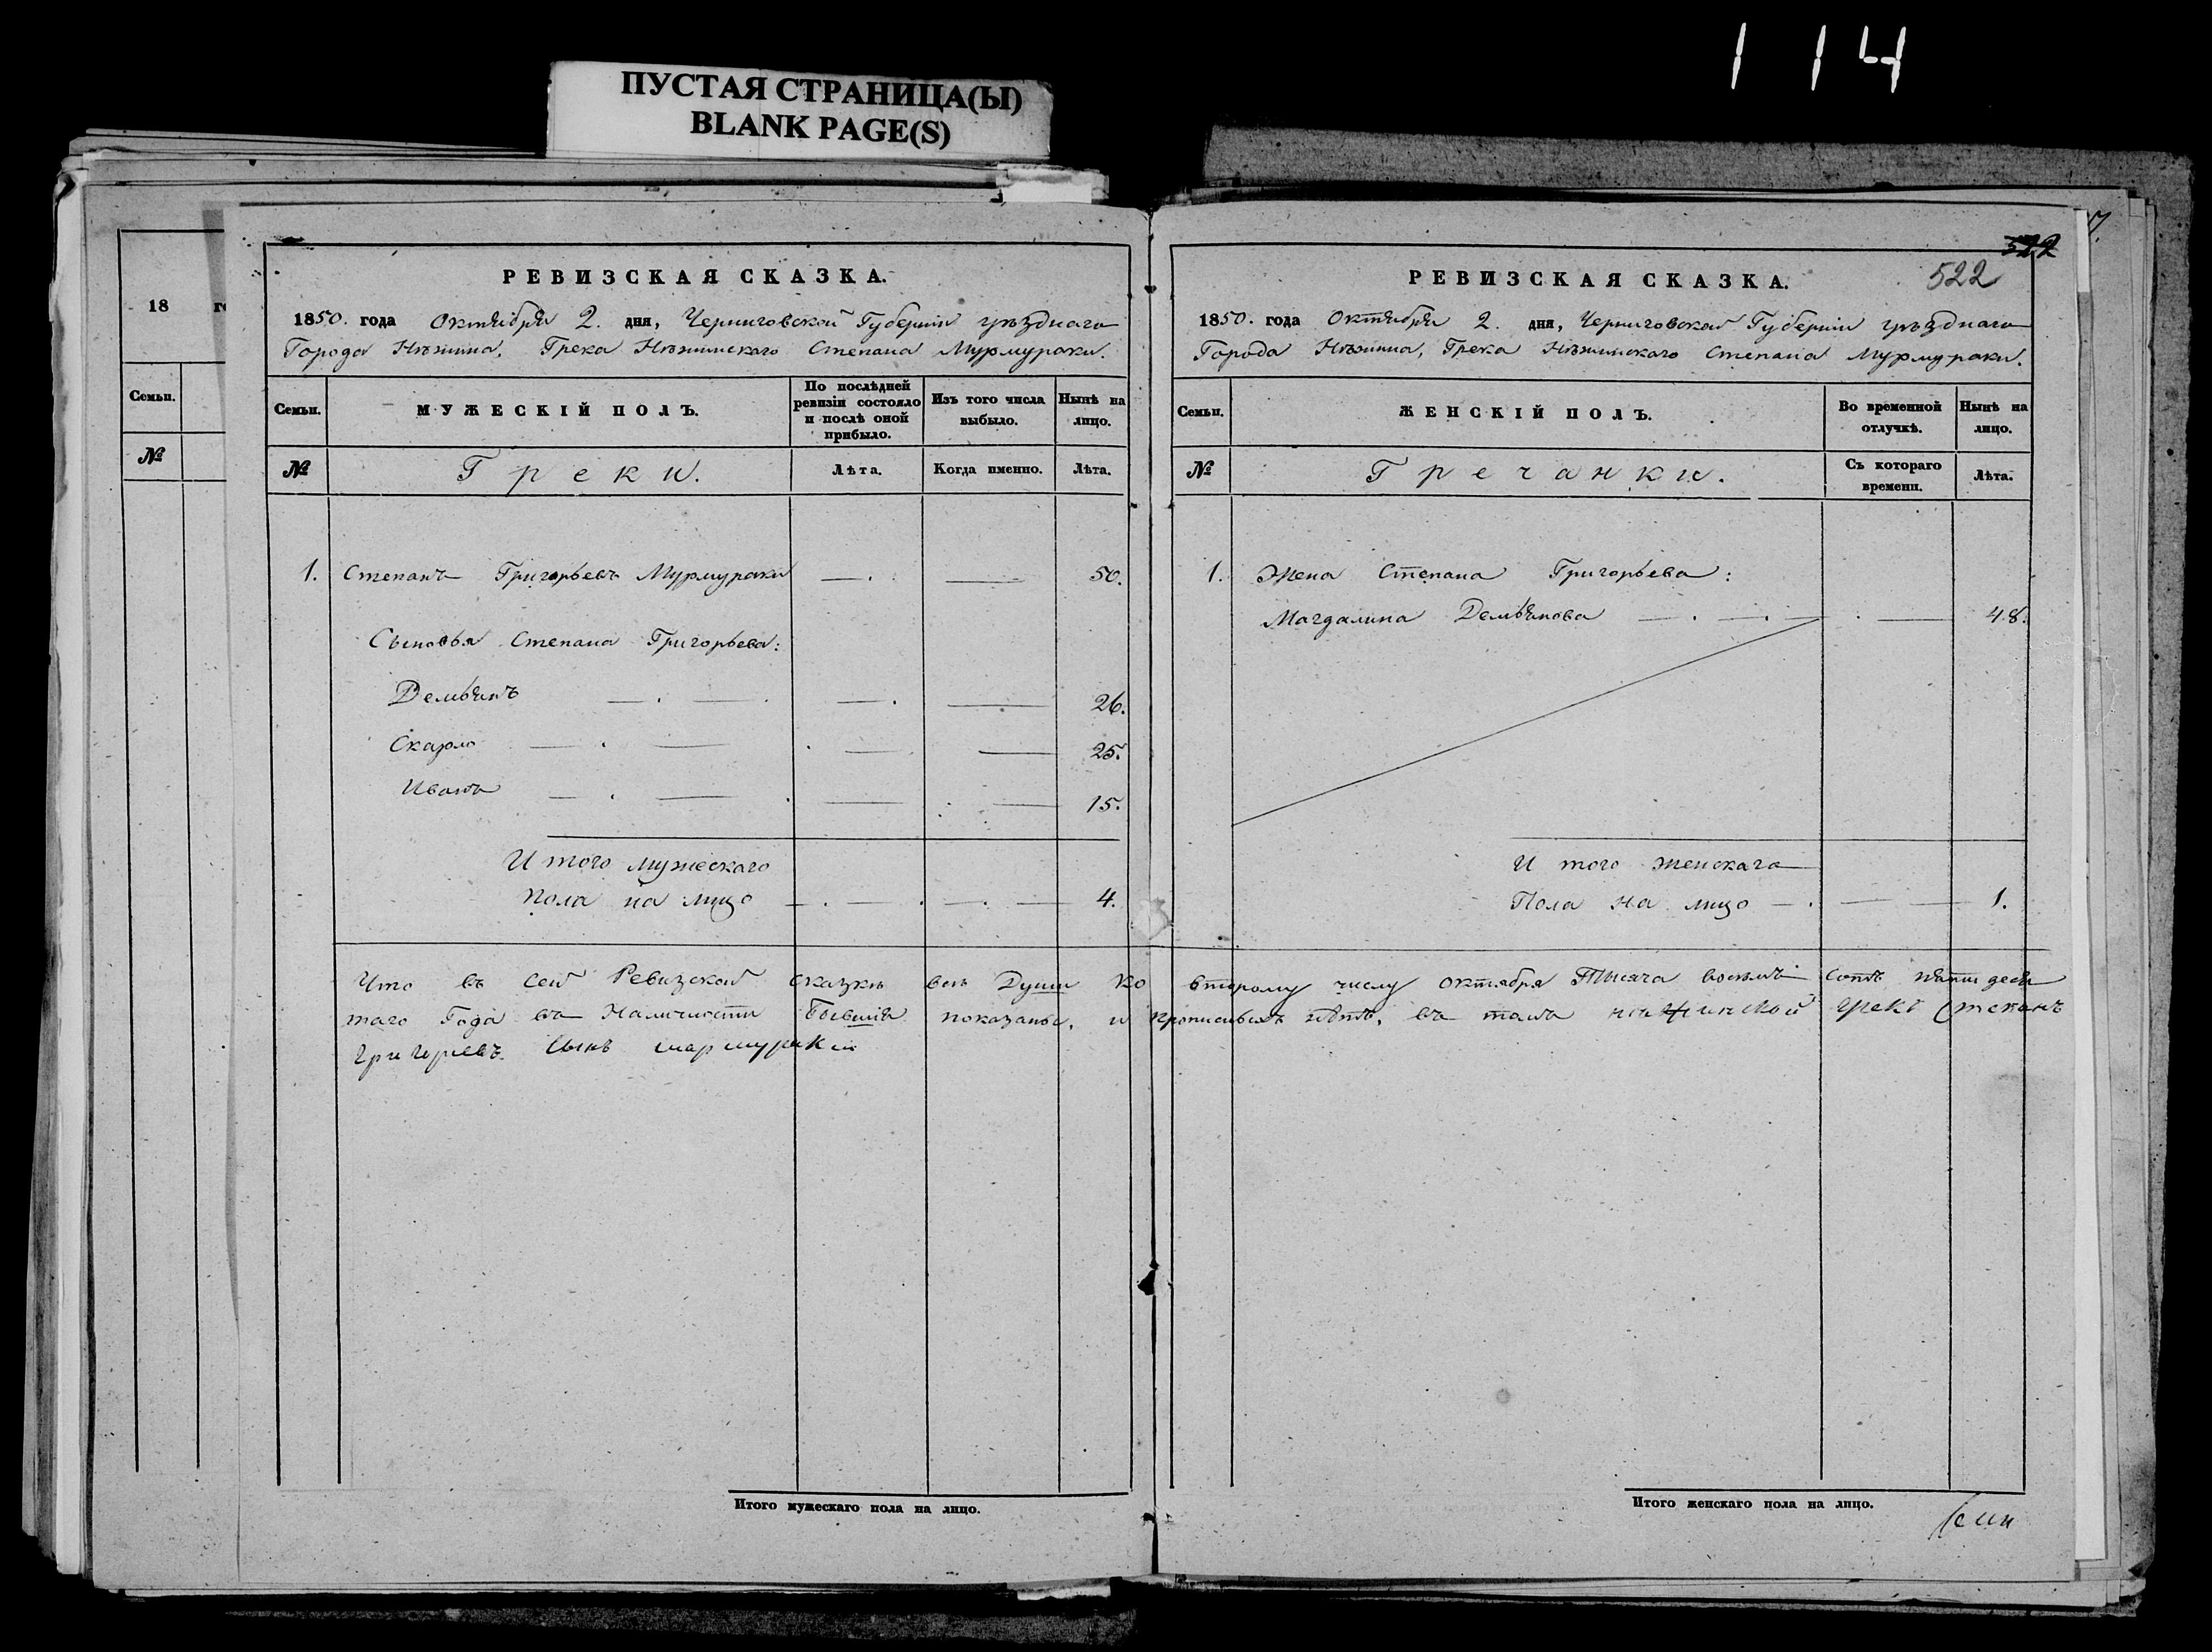 1 14
ПУСТАЯ СТРАНИЦА(Ы)
BLANK PAGE(S)
18 го
Семьи.
№
РЕВИЗСКАЯ СКАЗКА.
1850. года Октября 2. дня, Черниговской Губерніи уѣзднаго
Города Нѣжина, Грека Нѣжинскаго Степана Мурмураки.
Семьи.
МУЖЕСКІЙ ПОЛЪ.
По послѣдней ревизіи состояло и послѣ оной прибыло.
Изъ того числа выбыло.
Нынѣ на лицо.
№
Греки.
Лѣта.
Когда именно.
Лѣта.
1. Степанъ Григорьевъ Мурмураки — . — 50.
Сыновья Степана Григорьева:
Демьянъ — . — . — . — 26.
Скарло — . — . — — 25.
Иванъ — . — . — . — 15.
И того мужескаго
пола на лицо — . — . — . — 4.
Что въ сей Ревизской сказкѣ всѣ Души ко
таго Года въ Наличности Бывшія показаны, и
Григориевъ Сынъ мармураки
Итого мужескаго пола на лицо.
522
522
РЕВИЗСКАЯ СКАЗКА.
1850. года Октября 2. дня, Черниговской Губерніи уѣзднаго
Города Нѣжина, Грека Нѣжинскаго Степана Мурмураки.
Семьи.
ЖЕНСКІЙ ПОЛЪ.
Во временной отлучкѣ.
Нынѣ на лицо.
№
Гречанки.
Съ котораго времени.
Лѣта.
1. Жена Степана Григорьева:
Магдалина Демьянова — . — . — . — 48.
И того женскаго
Пола на лицо — . — — 1.
второму числу октября Тысяча восемъ сотъ пятидеся
прописныхъ нѣтъ, въ томъ нѣжинской грекъ Степанъ
Итого женскаго пола на лицо.